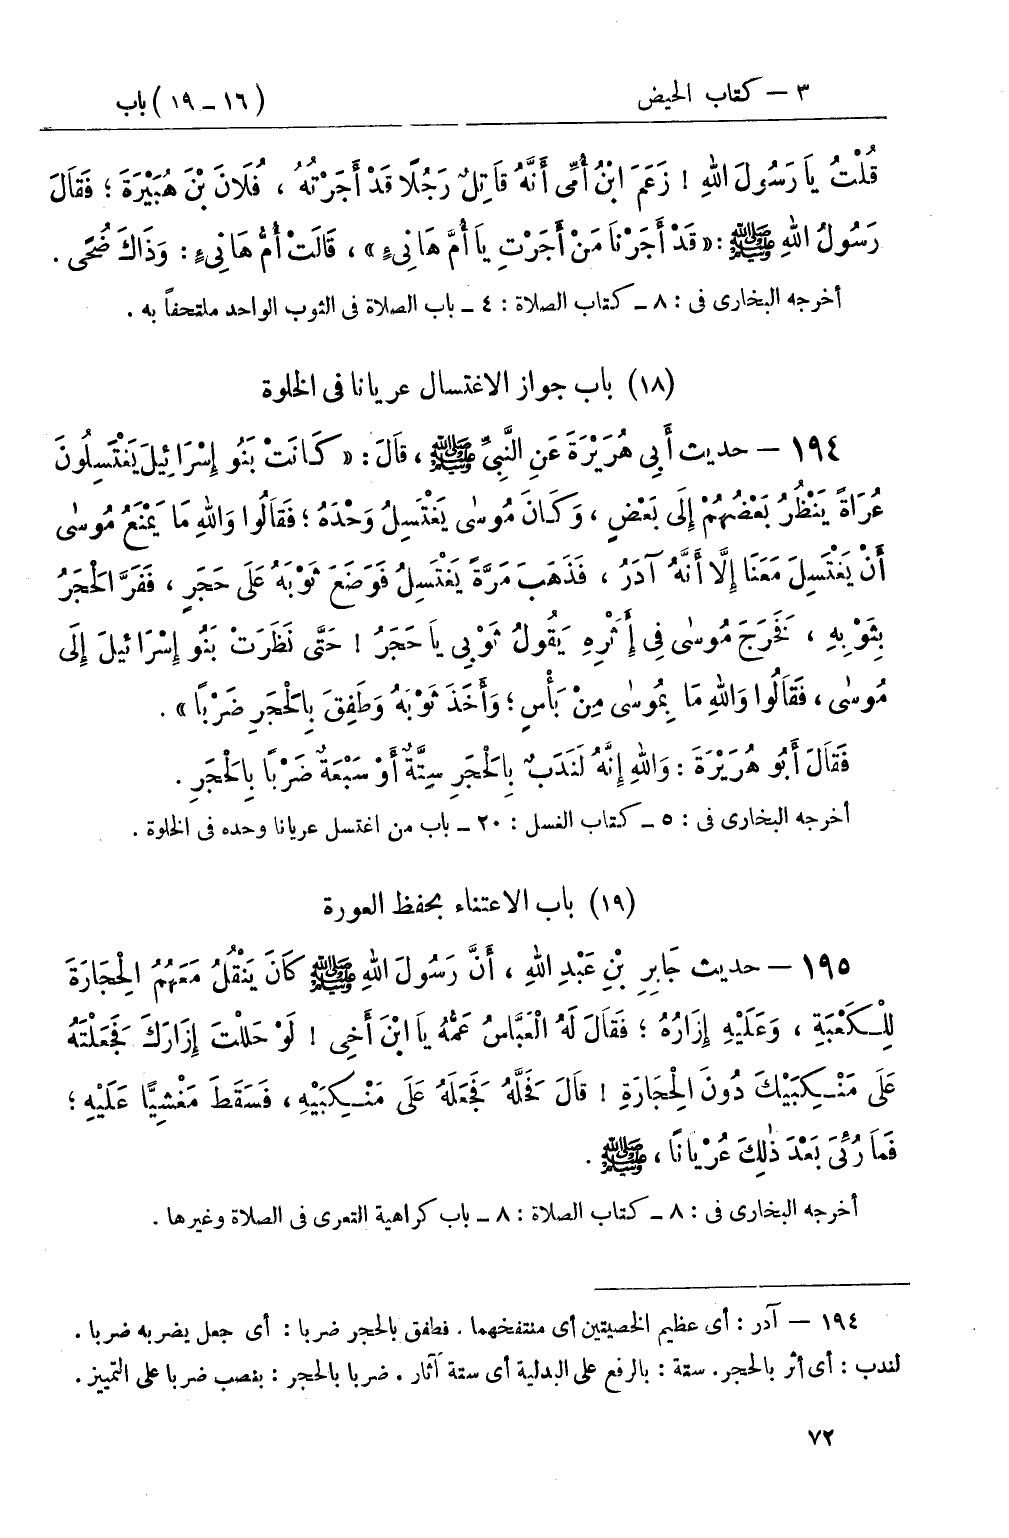 ٣ – كتاب الحيض
(١٦ – ١٩) باب
قُلْتُ يَا رَسُولَ اللهِ ! زَعَمَ ابْنُ أُمِّى أَنَّهُ قَاتِلٌ رَجُلًا قَدْ أَجَرْتُهُ ، فُلَانَ بْنَ هُبَيْرَةَ ؛ فَقَالَ
رَسُولُ اللهِ ﷺ : « قَدْ أَجَرْنَا مَنْ أَجَرْتِ يَا أُمَّ هَانِىءٍ » ، قَالَتْ أُمُّ هَانِىءٍ : وَذَاكَ ضُحًى .
أخرجه البخارى فى : ٨ ـ كتاب الصلاة : ٤ ـ باب الصلاة فى الثوب الواحد ملتحفاً به .
(١٨) باب جواز الاغتسال عريانا فى الخلوة
١٩٤ – حديث أَبِى هُرَيْرَةَ عَنِ النَّبِىِّ ﷺ ، قَالَ : « كَانَتْ بَنُو إِسْرَائِيلَ يَغْتَسِلُونَ
عُرَاةً يَنْظُرُ بَعْضُهُمْ إِلَى بَعْضٍ ، وَكَانَ مُوسٰى يَغْتَسِلُ وَحْدَهُ ؛ فَقَالُوا وَاللهِ مَا يَمْنَعُ مُوسٰى
أَنْ يَغْتَسِلَ مَعَنَا إِلَّا أَنَّهُ آدَرُ ، فَذَهَبَ مَرَّةً يَغْتَسِلُ فَوَضَعَ ثَوْبَهُ عَلَى حَجَرٍ ، فَفَرَّ الْحَجَرُ
بِثَوْبِهِ ، فَخَرَجَ مُوسٰى فِى إِثْرِهِ يَقُولُ ثَوْبِى يَا حَجَرُ ! حَتَّى نَظَرَتْ بَنُو إِسْرَائيلَ إِلَى
مُوسٰى ، فَقَالُوا وَاللهِ مَا بِمُوسٰى مِنْ بَأْسٍ ؛ وَأَخَذَ ثَوْبَهُ وَطَفِقَ بِالْحَجَرِ ضَرْبًا » .
فَقَالَ أَبُو هُرَيْرَةَ : وَاللهِ إِنَّهُ لَنَدَبٌ بِالْحَجَرِ سِتَّةٌ أَوْ سَبْعَةٌ ضَرْبًا بِالْحَجَرِ .
أخرجه البخارى فى : ٥ ـ كتاب الغسل : ٢٠ ـ باب من اغتسل عريانا وحده فى الخلوة .
(١٩) باب الاعتناء بحفظ العورة
١٩٥ – حديث جَابِرِ بْنِ عَبْدِ اللهِ ، أَنَّ رَسُولَ اللهِ ﷺ كَانَ يَنْقُلُ مَعَهُمُ الْحِجَارَةَ
لِلْكَعْبَةِ ، وَعَلَيْهِ إِزَارُهُ ؛ فَقَالَ لَهُ الْعَبَّاسُ عَمُّهُ يَا ابْنَ أَخِى ! لَوْ حَلَلْتَ إِزَارَكَ فَجَعَلْتَهُ
عَلَى مَنْكِبَيْكَ دُونَ الْحِجَارَةِ ! قَالَ فَحَلَّهُ فَجَعَلَهُ عَلَى مَنْكِبَيْهِ ، فَسَقَطَ مَغْشِيًّا عَلَيْهِ ؛
فَمَا رُئِىَ بَعْدَ ذٰلِكَ عُرْيَانًا ، ﷺ .
أخرجه البخارى فى : ٨ ـ كتاب الصلاة : ٨ ـ باب كراهية التعرى فى الصلاة وغيرها .
١٩٤ – آدر : أى عظيم الخصيتين أى منتفخهما . فطفق بالحجر ضربا : أى جعل يضربه ضربا .
لندب : أى أثر بالحجر . ستة : بالرفع على البدلية أى ستة آثار . ضربا بالحجر : بنصب ضربا على التمييز .
٧٢